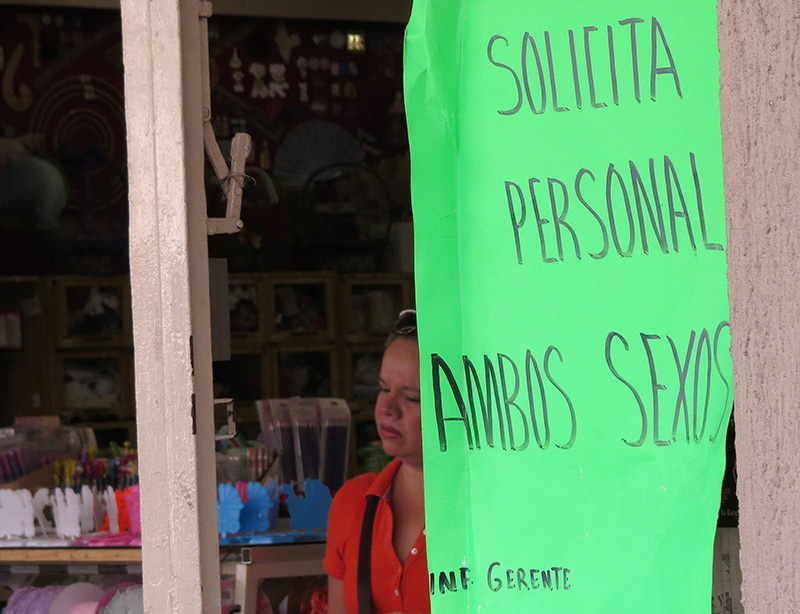 SOLICITA
PERSONAL
AMBOS SEXOS
INF. GERENTE